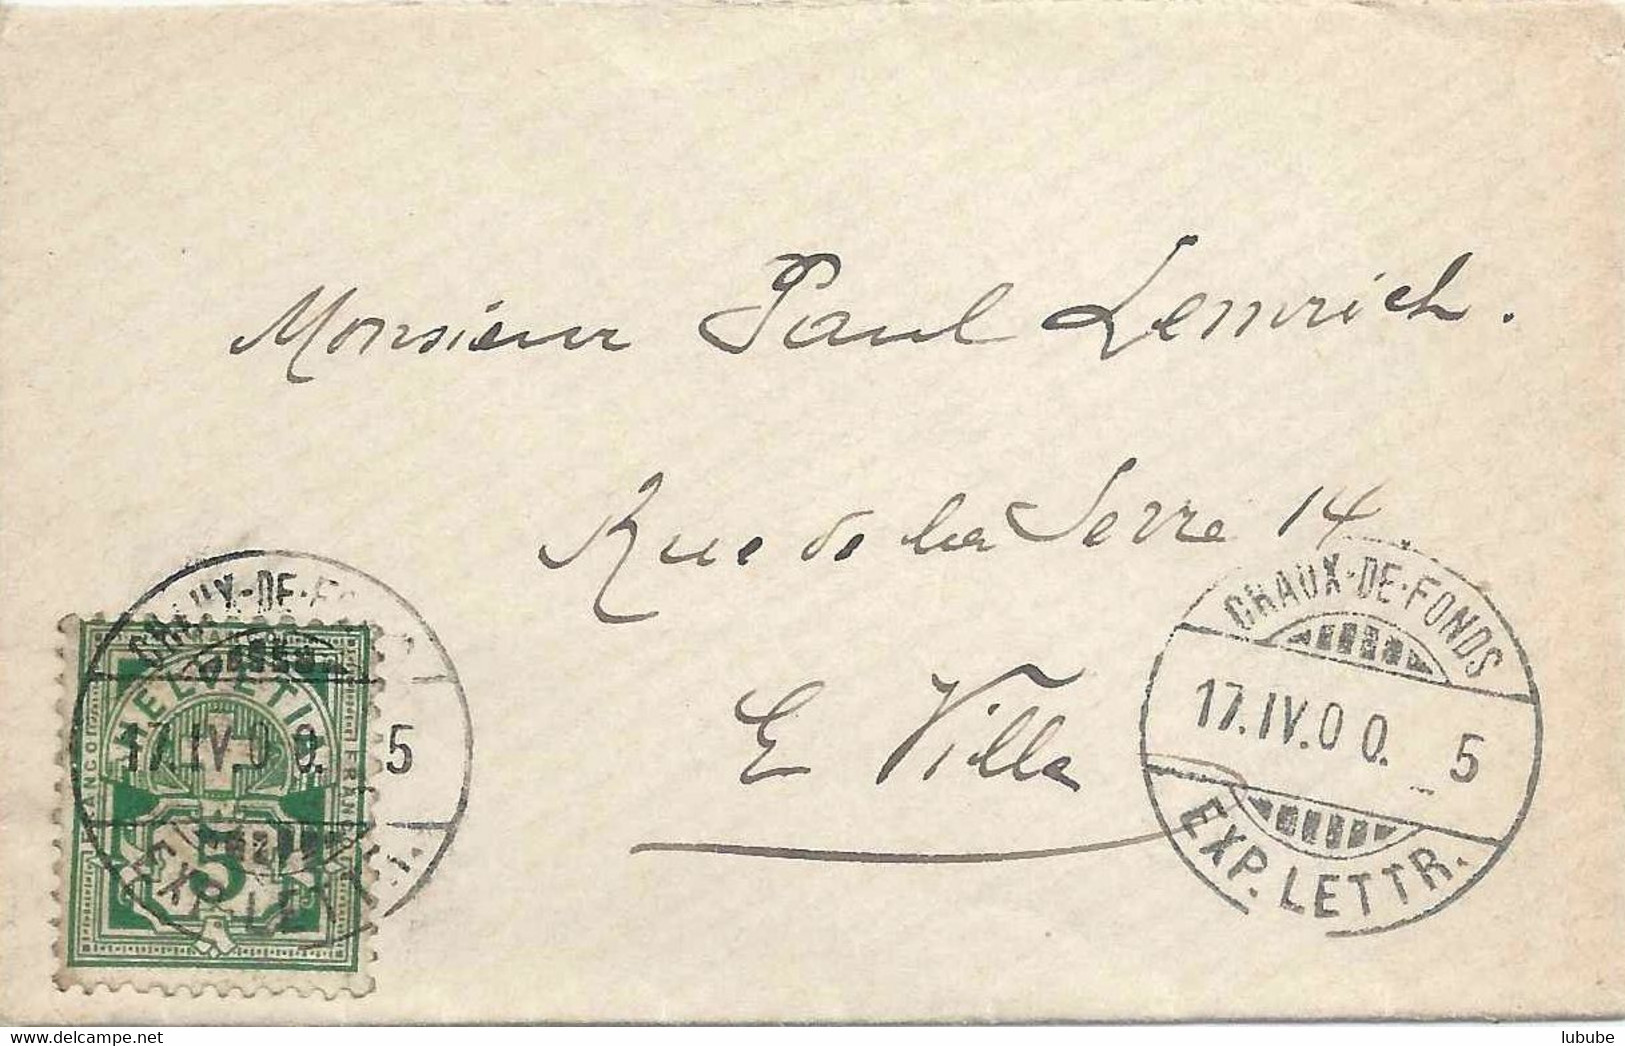 Monsieur Paul Lemrich.
Rue de la Serre 14
E Ville
CHAUX-DE-FONDS
17.IV.00. 5
EXP. LETTR.
CHAUX-DE-FONDS
17.IV.00. 5
EXP. LETTR.
HELVETIA
FRANCO
5
www.delcampe.net
lubube